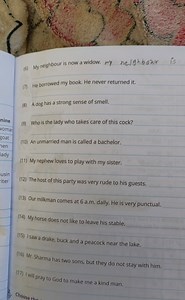 (6) My neighbour is now a widow. my neighbour is
(7) He borrowed my book. He never returned it.
(8) A dog has a strong sense of smell.
(9) Who is the lady who takes care of this cock?
(10) An unmarried man is called a bachelor.
(11) My nephew loves to play with my sister.
(12) The host of this party was very rude to his guests.
(13) Our milkman comes at 6 a.m. daily. He is very punctual.
(14) My horse does not like to leave his stable.
(15) I saw a drake, buck and a peacock near the lake.
(16) Mr. Sharma has two sons, but they do not stay with him.
(17) I will pray to God to make me a kind man.